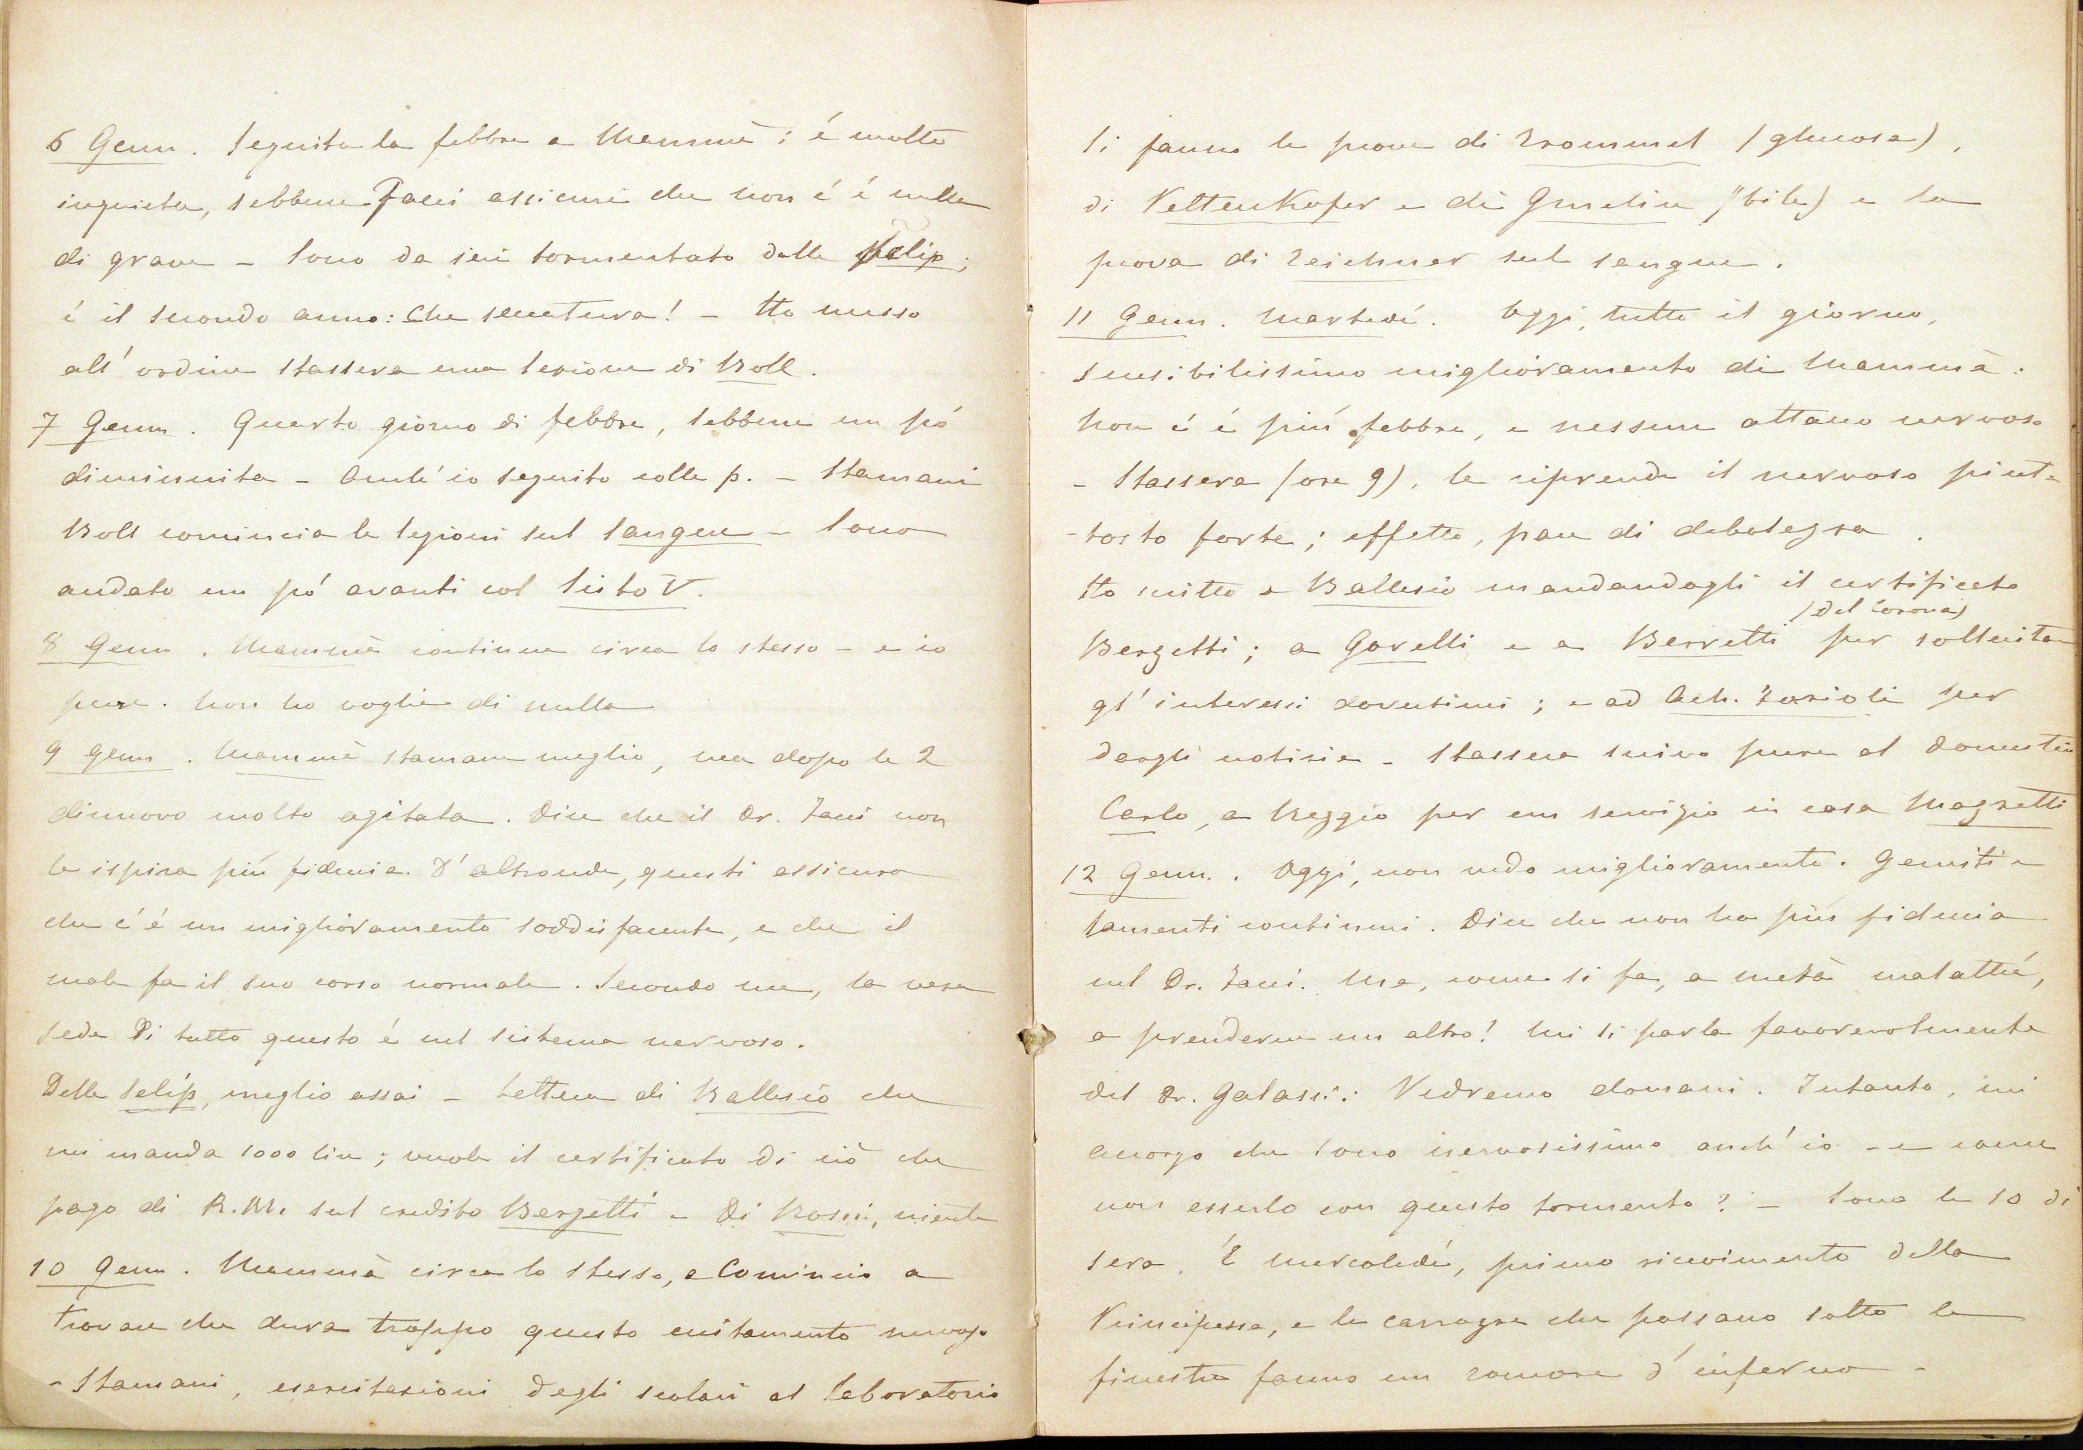 6 Genn. Seguita la febbre a Mammà; é molto
inquieta, sebbene Taci assicuri che non c'é nulla
di grave – Sono da ieri tormentato dalle pelip;
é il secondo anno: che seccatura! – Ho messo
all'ordine stassera una lezione di Boll.
7 Genn. Quarto giorno di febbre, sebbene un pó
diminuita – Anch'io seguito colle p. – Stamani
Boll comincia le lezioni sul sangue – Sono
andato un pó avanti col Sisto V.
8 Genn. Mammà continua circa lo stesso – e io
pure. Non ho voglia di nulla
9 Genn. Mammà stamane meglio, ma dopo le 2
dinuovo molto agitata. Dice che il Dr. Taci non
le ispira più fiducia. D'altronde, questi assicura
che c'é un miglioramento soddisfacente, e che il
male fa il suo corso normale. Secondo me, la vera
sede di tutto questo é nel sistema nervoso.
Delle selip, meglio assai – Lettera di Ballesio che
mi manda 1000 lire; vuole il certificato di ciò che
pago di R.M. sul credito Bergetti – Di Rossi, niente
10 Genn. Mammà circa lo stesso, e comincio a
trovare che dura troppo questo eccitamento nervoso
– Stamani, esercitazioni degli scolari al laboratorio
Si fanno le prove di Trommel (glucosa),
di Pettenkofer e di Gmelin (bile) e la
prova di Teichner sul sangue.
11 Genn. Martedí. Oggi, tutto il giorno,
sensibilissimo miglioramento di Mammà.
Non c'é più febbre, e nessun attacco nervoso
– Stassera (ore 9), le riprende il nervoso piut-
-tosto forte; effetto, pare di debolezza.
Ho scritto a Ballesio mandandogli il certificato
(del Corona)
Bergetti; a Gorelli e a Berretti per sollecitare
gl'interessi dovutimi; e ad Ach. Fazioli per
dargli notizie – Stassera scrivo pure al domestico
Carlo, a Reggio per un servizio in casa Magretti
12 Genn. Oggi, non vedo miglioramento. Gemiti e
lamenti continui. Dice che non ha più fiducia
nel Dr. Taci. Ma, come si fa, a metà malattia,
a prenderne un altro! Mi si parla favorevolmente
del Dr. Galassi. Vedremo domani. Intanto, mi
accorgo che sono nervosissimo anch'io – e come
non esserlo con questo tormento? – Sono le 10 di
sera. É mercoledí, primo ricevimento della
Principessa, e le carrozze che passano sotto le
finestre fanno un romore d'inferno –